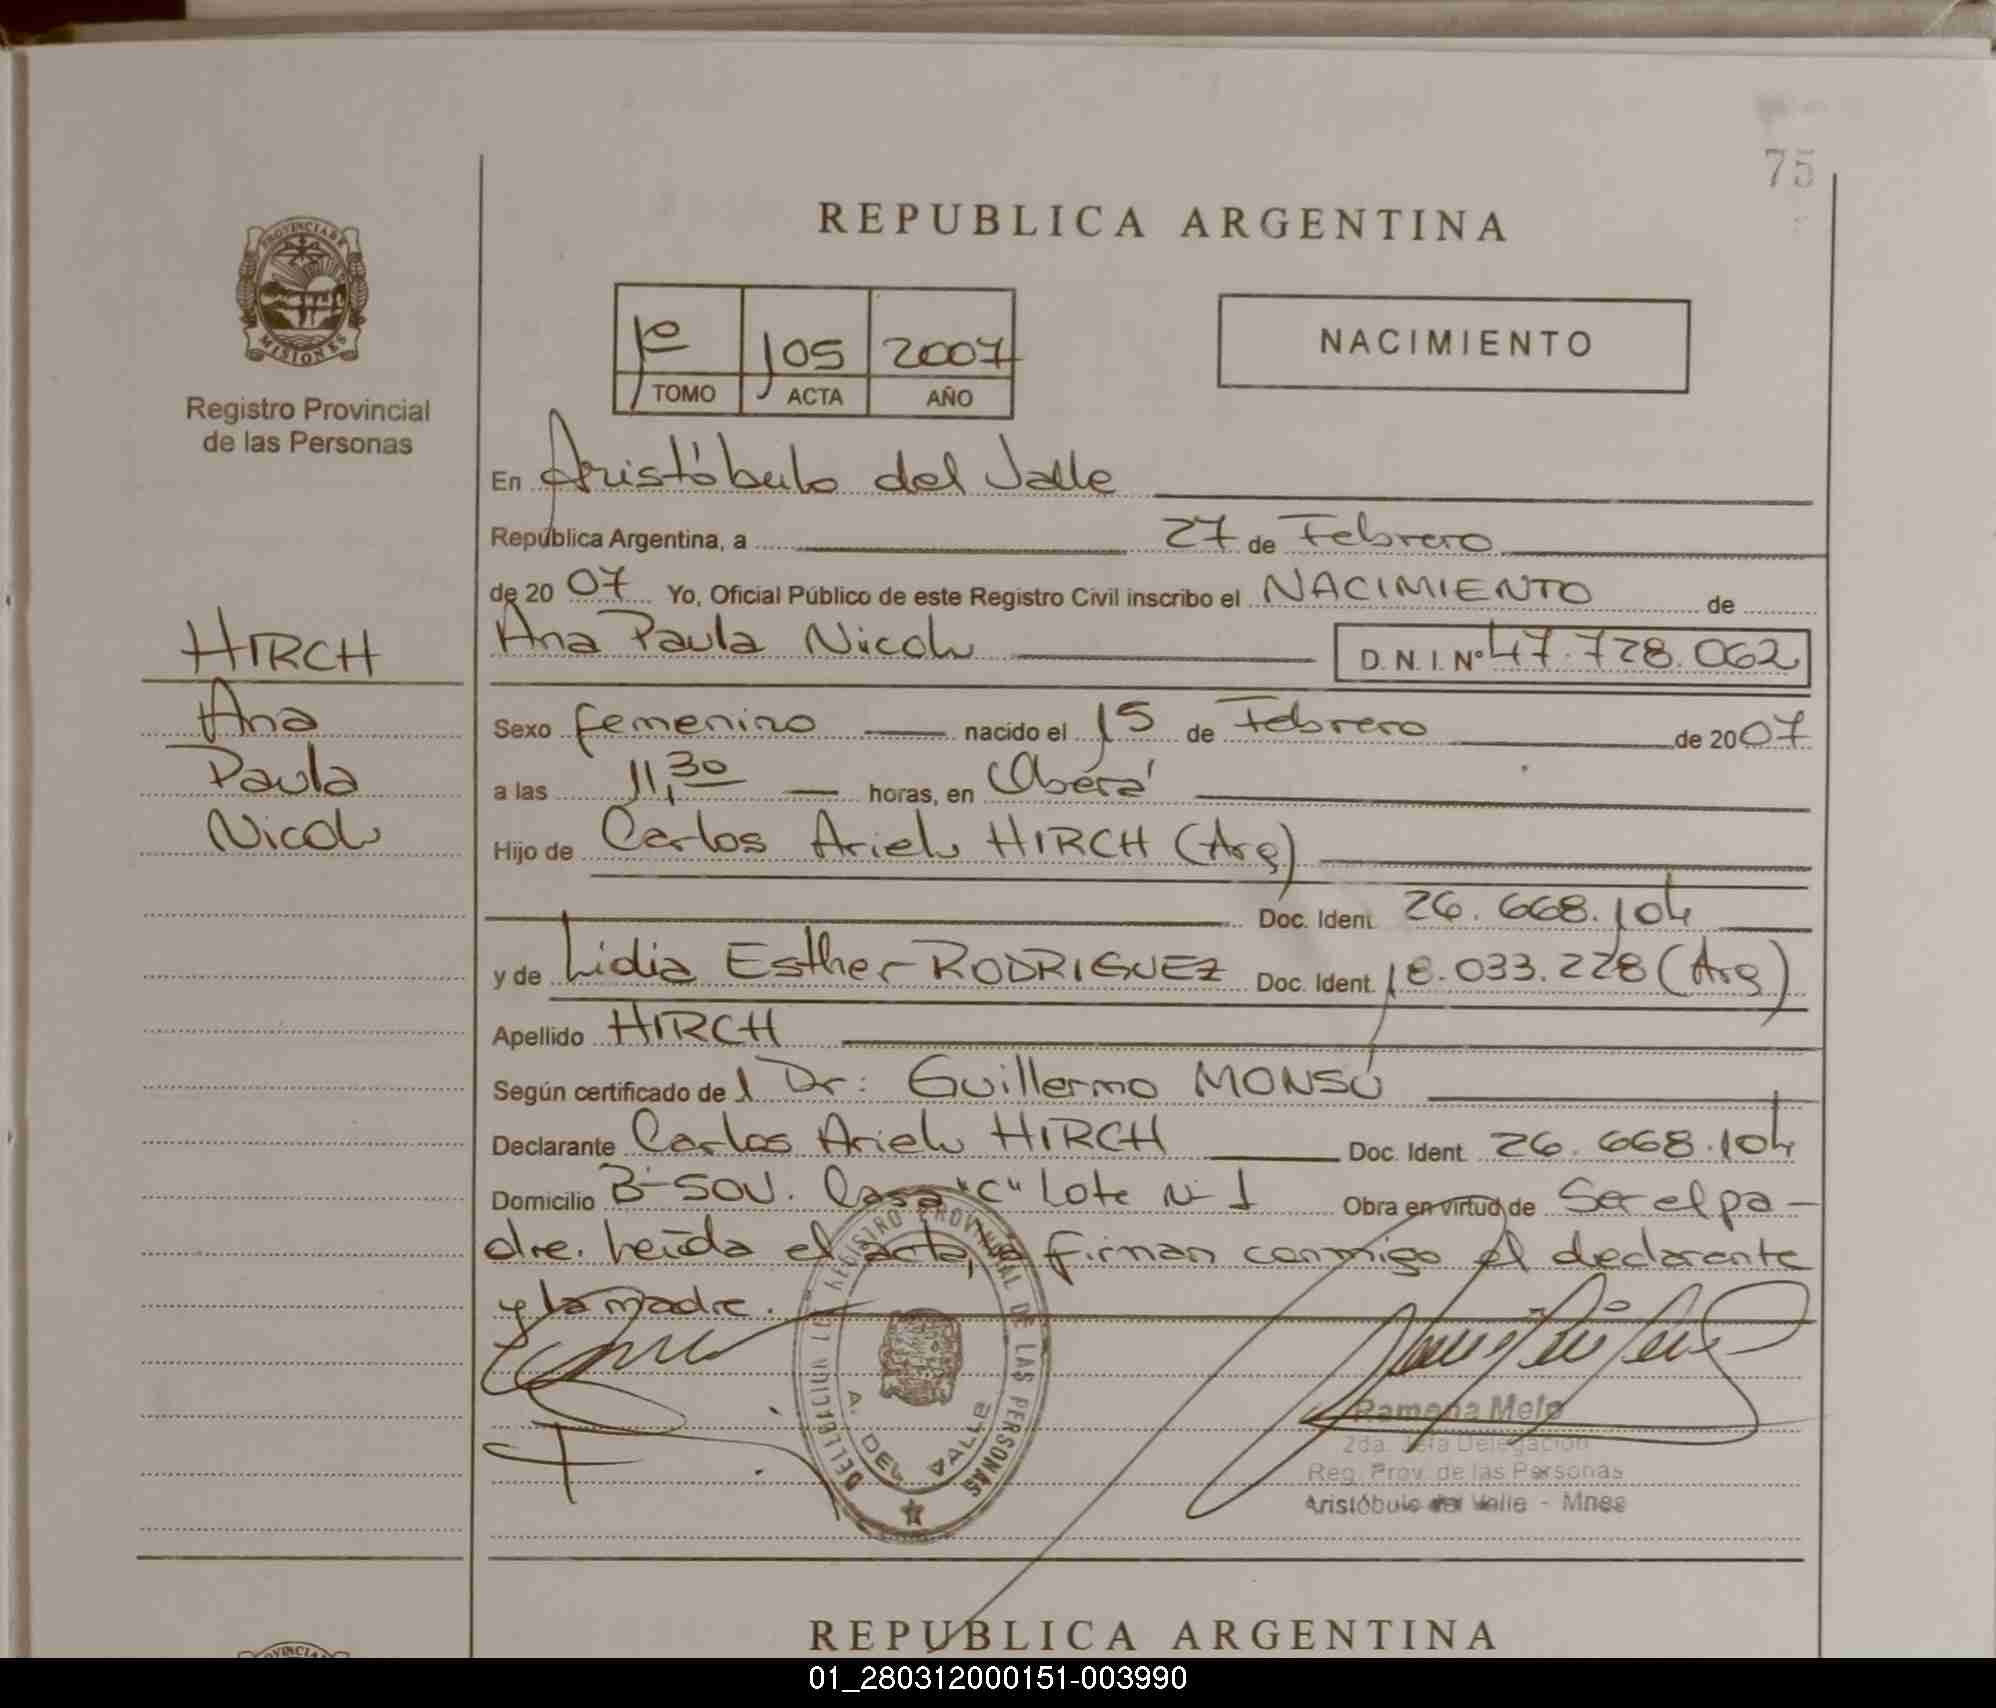 75
REPUBLICA ARGENTINA
PROVINCIA DE
MISIONES
Registro Provincial
de las Personas
1º 105 2007
TOMO ACTA AÑO
NACIMIENTO
En Aristóbulo del Valle
República Argentina, a 27 de Febrero
de 2007 Yo, Oficial Público de este Registro Civil inscribo el NACIMIENTO de
Ana Paula Nicol D.N.I. Nº 47.728.062
HIRCH
Ana
Paula
Nicol
Sexo femenino nacido el 15 de Febrero de 2007
a las 11,30 horas, en Oberá
Hijo de Carlos Ariel HIRCH (Arg)
Doc. Ident. 26.668.104
y de Lidia Esther RODRIGUEZ Doc. Ident. 18.033.228 (Arg)
Apellido HIRCH
Según certificado del Dr: Guillermo MONSÚ
Declarante Carlos Ariel HIRCH Doc. Ident. 26.668.104
Domicilio Bº SOU. Casa "C" Lote Nº 1 Obra en virtud de Ser el pa-
dre. Leída el acta, firman conmigo el declarante
y la madre.
DELEGACION REGISTRO PROVINCIAL DE LAS PERSONAS
A. DEL VALLE
Ramona Melo
2da. Jefa Delegación
Reg. Prov. de las Personas
Aristóbulo del Valle - Mnes
REPUBLICA ARGENTINA
01_280312000151-003990